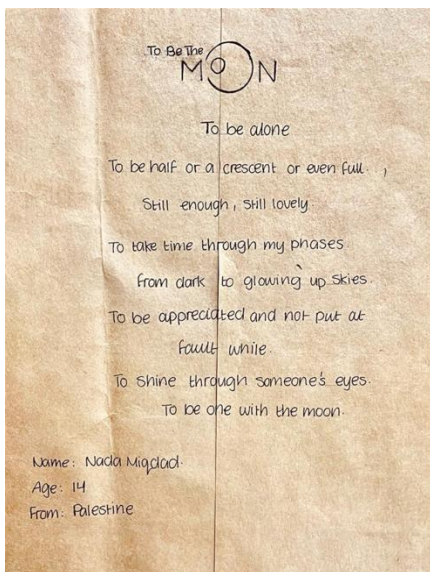 To Be The
MOON
To be alone
To be half or a crescent or even full. ,
Still enough, still lovely.
To take time through my phases.
from dark to glowing up skies.
To be appreciated and not put at
fault while.
To shine through someone's eyes.
To be one with the moon.
Name: Nada Miqdad.
Age: 14
From: Palestine